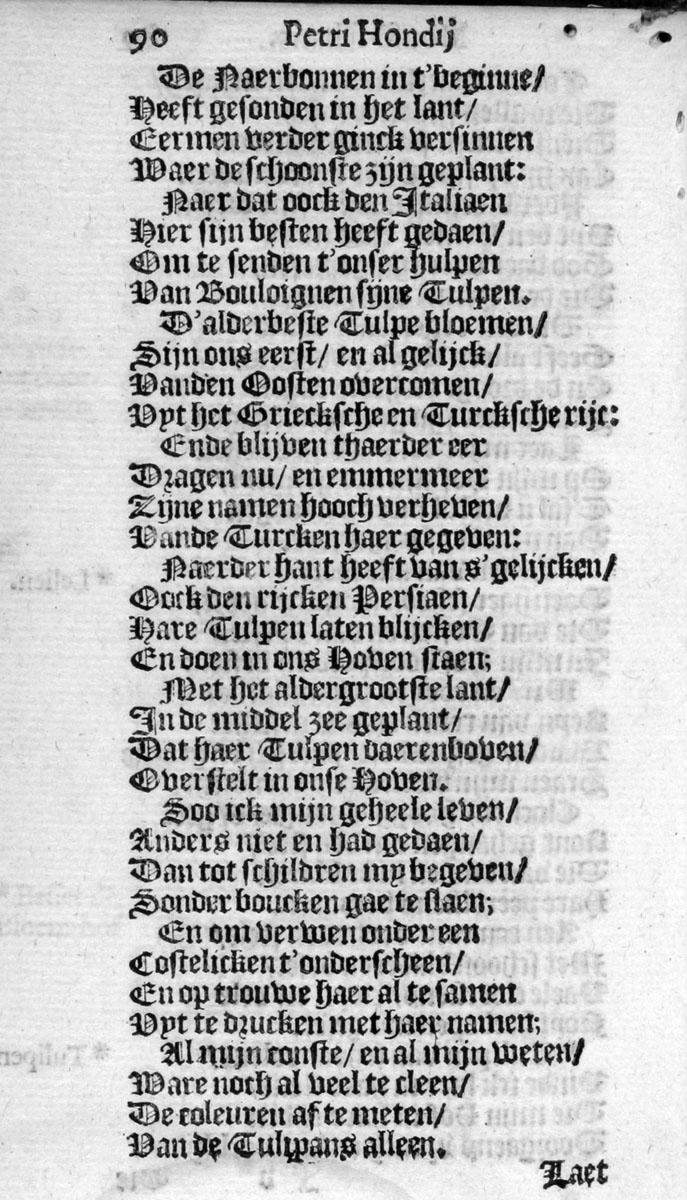 90 Petri Hondij
De Naerbonnen in t'beginne/
Heeft gesonden in het lant/
Eermen verder ginck versinnen
Waer de schoonste zijn geplant:
Naer dat oock den Italiaen
Hier sijn besten heeft gedaen/
Om te senden t'onser hulpen
Van Bouloignen sijne Tulpen.
D'alderbeste Tulpe bloemen/
Sijn ons eerst/ en al gelijck/
Vanden Oosten overcomen/
Vyt het Griecksche en Turcksche rijc:
Ende blijven thaerder eer
Dragen nu/ en emmermeer
Zijne namen hooch verheven/
Vande Turcken haer gegeven:
Naerder hant heeft van s'gelijcken/
Oock den rijcken Persiaen/
Hare Tulpen laten blijcken/
En doen in ons Hoven staen;
Met het aldergrootste lant/
In de middel zee geplant/
Dat haer Tulpen daerenboven/
Overstelt in onse Hoven.
Soo ick mijn geheele leven/
Anders niet en had gedaen/
Dan tot schildren my begeven/
Sonder boucken gae te slaen;
En om verwen onder een
Costelicken t'onderscheen/
En op trouwe haer al te samen
Vyt te drucken met haer namen;
Al mijn conste/ en al mijn weten/
Ware noch al veel te cleen/
De coleuren af te meten/
Van de Tulipans alleen.
Laet